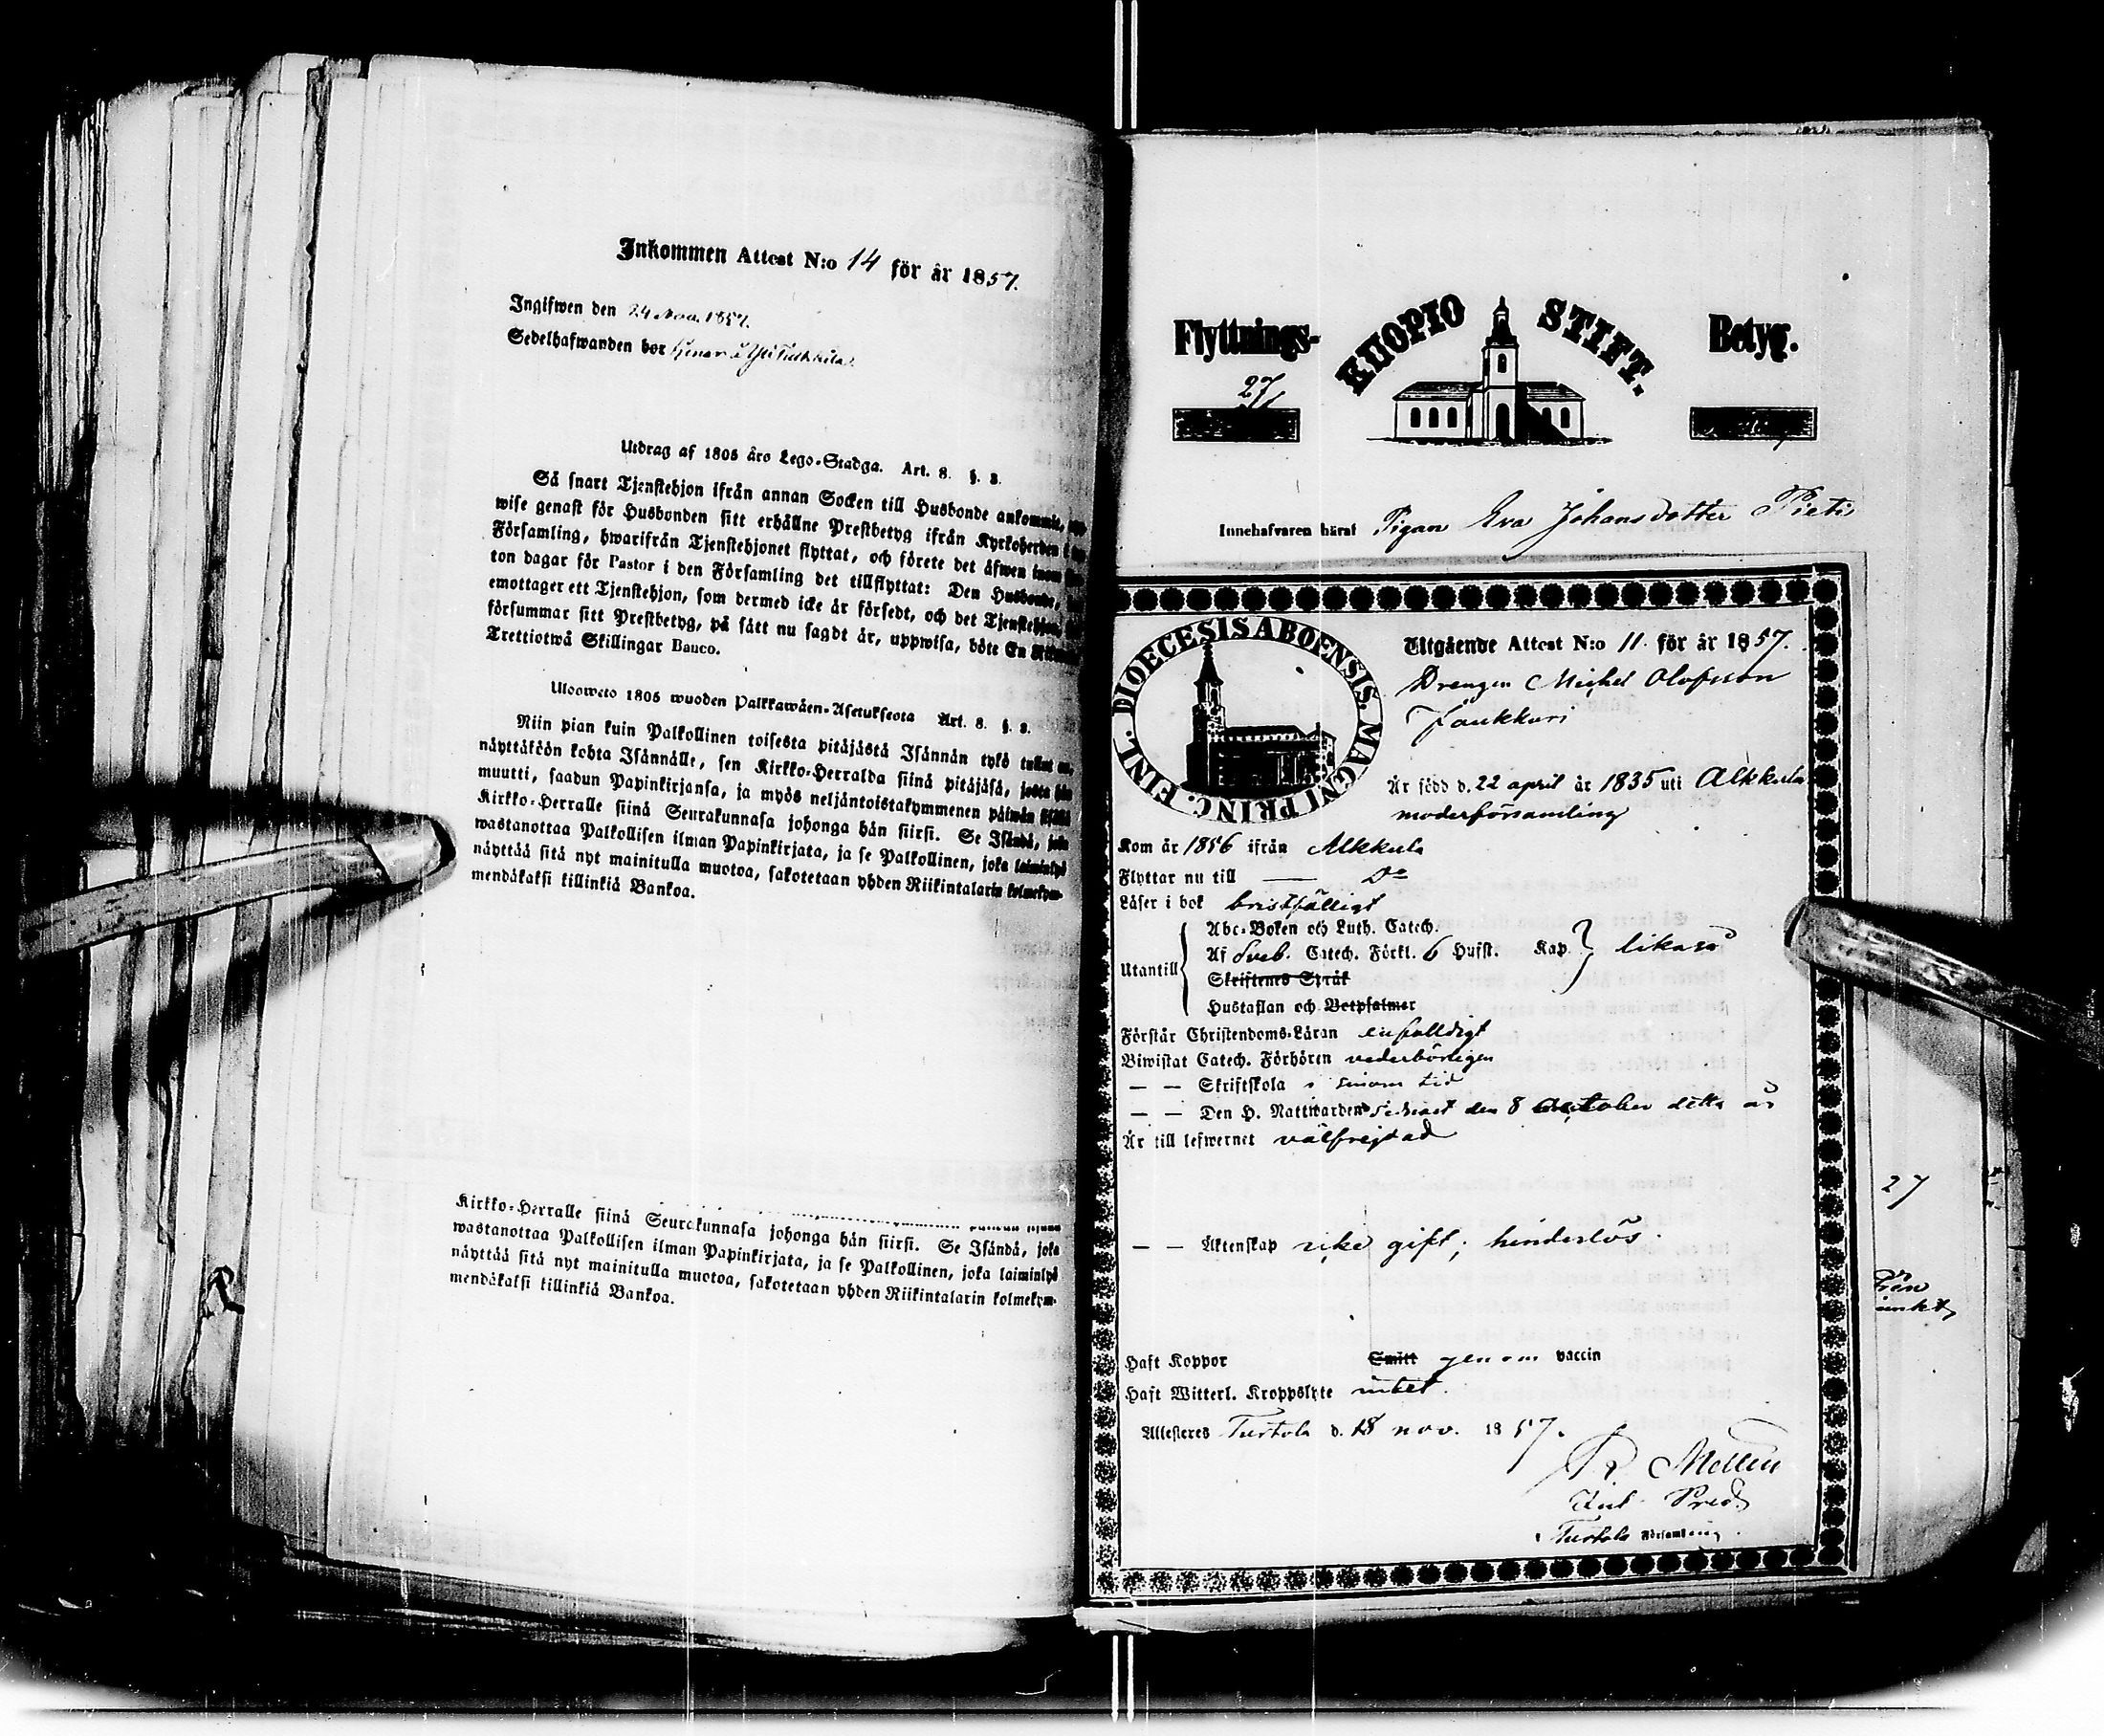 Inkommen Attest N:o 14 för år 1857.
Ingifwen den 24 Nov. 1857.
Sedelhafwanden bor
Utdrag af 1805 års Lego-Stadga. Art. 8. §. 3.
Så snart Tjenstehjon ifrån annan Socken till Husbonde ankommit,
wise genast för Husbonden sitt erhållne Prestbetyg ifrån Kyrkoherden i
Församling, hwarifrån Tjenstehjonet flyttat, och förete det äfwen inom
ton dagar för Pastor i den Församling det tillflyttat: Den Husbonde,
emottager ett Tjenstehjon, som dermed icke är försedt, och det Tjenstehjon,
försummar sitt Prestbetyg, på sätt nu sagdt är, uppwisa, böte En
Trettiotwå Skillingar Banco.
Ulosweto 1805 wuoden Palkkawäen-Asetuksesta Art. 8. §. 3.
Niin pian kuin Palkollinen toisesta pitäjästä Isännän tykö tullut on,
näyttäköön kohta Isännälle, sen Kirkko-Herralda siinä pitäjäsä, josta hän
muutti, saadun Papinkirjansa, ja myös neljäntoistakymmenen päiwän sisällä
Kirkko-Herralle siinä Seurakunnasa johonga hän siirsi. Se Isändä, joka
wastanottaa Palkollisen ilman Papinkirjata, ja se Palkollinen, joka laiminlyö
näyttää sitä nyt mainitulla muotoa, sakotetaan yhden Riikintalarin kolmekym-
mendäkaksi killinkiä Bankoa.
Kirkko-Herralle siinä Seurakunnasa johonga hän siirsi. Se Isändä, joka
wastanottaa Palkollisen ilman Papinkirjata, ja se Palkollinen, joka laiminlyö
näyttää sitä nyt mainitulla muotoa, sakotetaan yhden Riikintalarin kolmekym-
mendäkaksi killinkiä Bankoa.
Flyttnings- KUOPIO STIFT. Betyg.
27
Innehafvaren häraf Pigan Eva Johansdotter Pieti
DIOECESIS ABOENSIS. MAGNI PRINC. FINL.
Utgående Attest N:o 11 för år 1857.
Drengen Michel Olofsson
Jaukkuri
Är född d. 22 april år 1835 uti Alkkula
moderförsamling
Kom år 1856 ifrån Alkkula
Flyttar nu till — Do
Läser i bok bristfälligt
Abc-Boken och Luth. Catech.
Utantill Af Sveb. Catech. Förkl. 6 Hufst. Kap. likaså
Skriftenes Språk
Hustaflan och Botpsalmer
Förstår Christendoms-Läran enfalldigt
Biwistat Catech. Förhören vederbörligen
— — Skriftskola i sinom tid
— — Den H. Nattwarden senast den 8 October detta år
Är till lefwernet välfrejdad
27
— — Äktenskap icke gift; hinderlös.
Haft Koppor Smitt genom vaccin
Haft Witterl. Kroppslyte intet.
Attesteres Turtola d. 18 nov. 1857.
Turtola Församling.